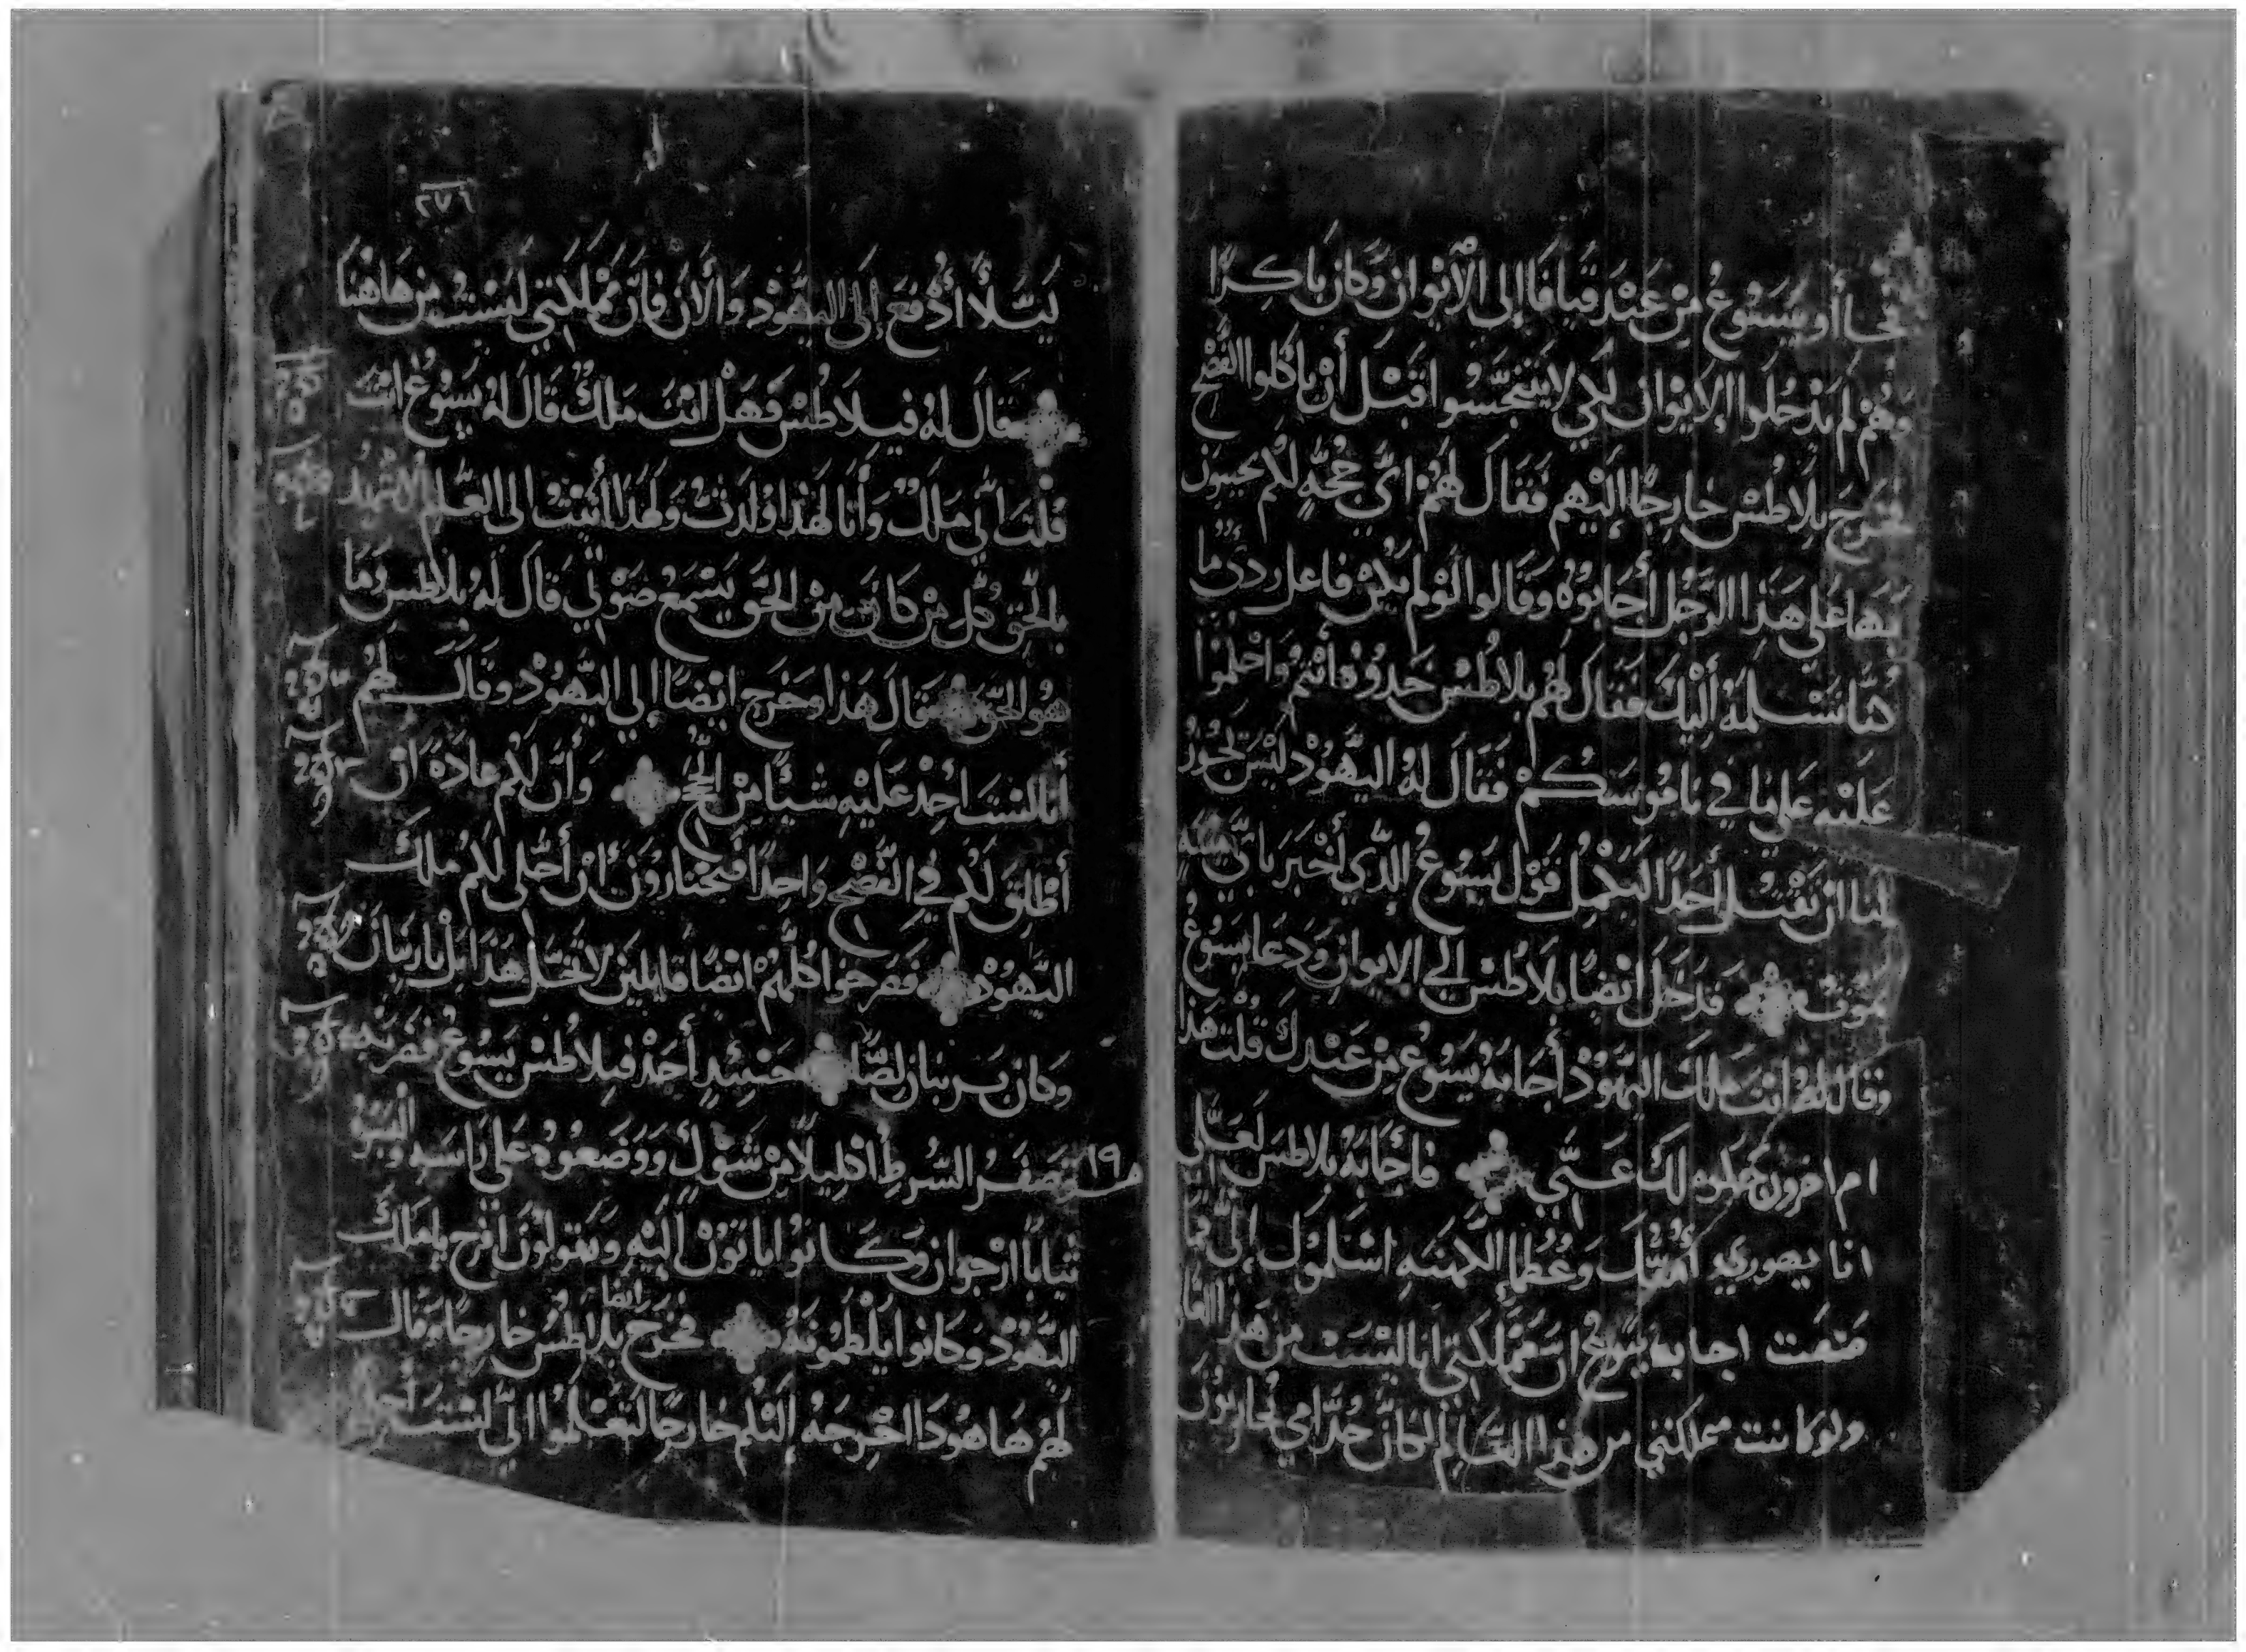 فجاأو يسوع من عند قيافا إلى الأيوان وكان باكرا
وهم لم يدخلوا الايوان لكي لا يتنجسوا قبل أن ياكلوا الفصح
فخرج بلاطس خارجا إليهم فقال لهم أي حجه لكم تجيبون
بها على هذا الرجل أجابوه وقالوا لو لم يكن فاعل ردئ ما
كنا نسلمه أليك فقال لهم بلاطس خدوه أنتم واحكموا
عليه على ما في ناموسكم فقال له اليهود ليس يجوز
لنا ان نقتل أحدا ليكمل قول يسوع الذي أخبر باي ميته
يموت فدخل ايضا بلاطس إلى الايوان ودعا يسوع
وقال له انت ملك اليهود أجابه يسوع من عندك قلت هذا
ام اخرون لك عني فأجابه بلاطس لعلي
انا يهوري أمتك وعظما الكهنه اسلموك إلي فما
صنعت اجابه يسوع ان مملكتي انا ليست من هذا العا
ولو كانت مملكتي من هذا العالم لكان خدامي يحاربون
٢٧٦
ليلا أدفع إلى اليهود والأن فان مملكتي ليست من هاهنا
فقال له فيلاطس فهل انت ملك قال له يسوع انت
قلت اني ملك وأنا لهذا ولدت ولهذا أتيت الى العالم لاشهد
بالحق كل من كان من الحق يسمع صوتي قال له بلاطس وما
هو الحق قال هذا وخرج ايضا إلي اليهود وقال لهم
أنا لست اجد عليه شيئا من وأن لكم عادة ان
أطلق لكم في الفصح واحدا فتختارون ان أخلي لكم ملك
اليهود فصرخوا كلهم ايضا قايلين لا تخل هذا بل باربان
وكان بربان لصا حينئد أحد فيلاطس يسوع فضربه
١٩ وضفر الشرط اكليلا من شوك ووضعوه على راسه والبسوه
ثيابا ارجوان وكانوا ياتون اليه ويقولون افرح ياملك
اليهود وكانوا يلطمونه فخرج ايضا بلاطس خارجا وقال
لهم ها هودا اخرجه إليكم خارجا لتعلموا اني لست اجد